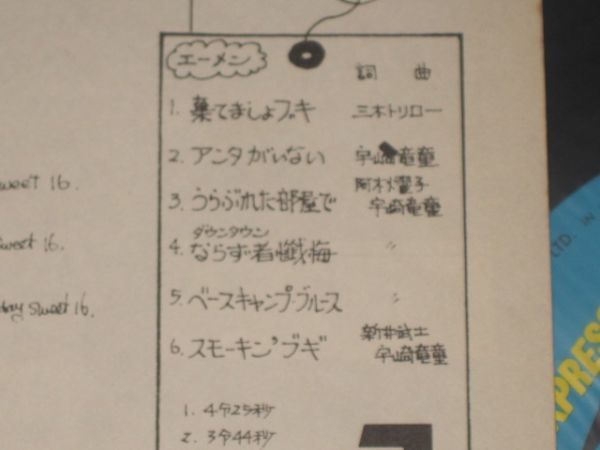 エーメン
詞 曲
1. 棄てましょブキ 三木トリロー
2. アンタがいない 宇崎竜童
3. うらぶれた部屋で 阿木燿子
宇崎竜童
ダウンタウン
4. ならず者懺悔 〃
5. ベースキャンプ・ブルース 〃
6. スモーキン'ブギ 新井武士
宇崎竜童
1. 4分25秒
2. 3分44秒
sweet 16.
sweet 16.
sweet 16.
LTD.
XPRESS